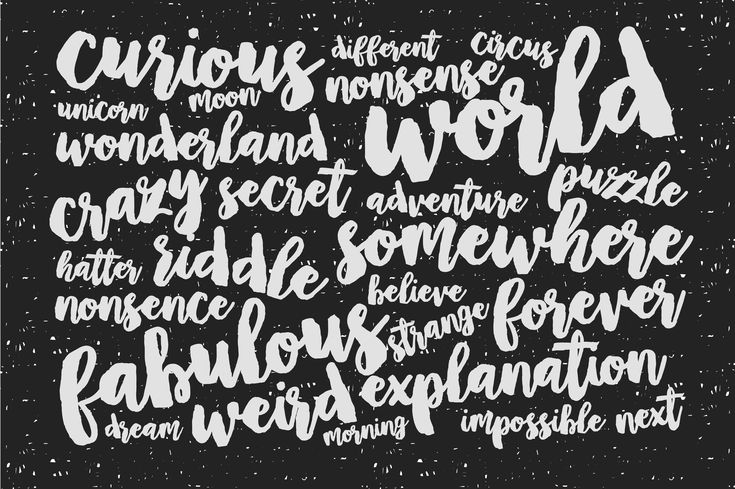 curious
different
circus
world
nonsense
unicorn
moon
wonderland
crazy
secret
adventure
puzzle
hatter
riddle
somewhere
nonsence
believe
strange
forever
fabulous
explanation
dream
weird
morning
impossible
next